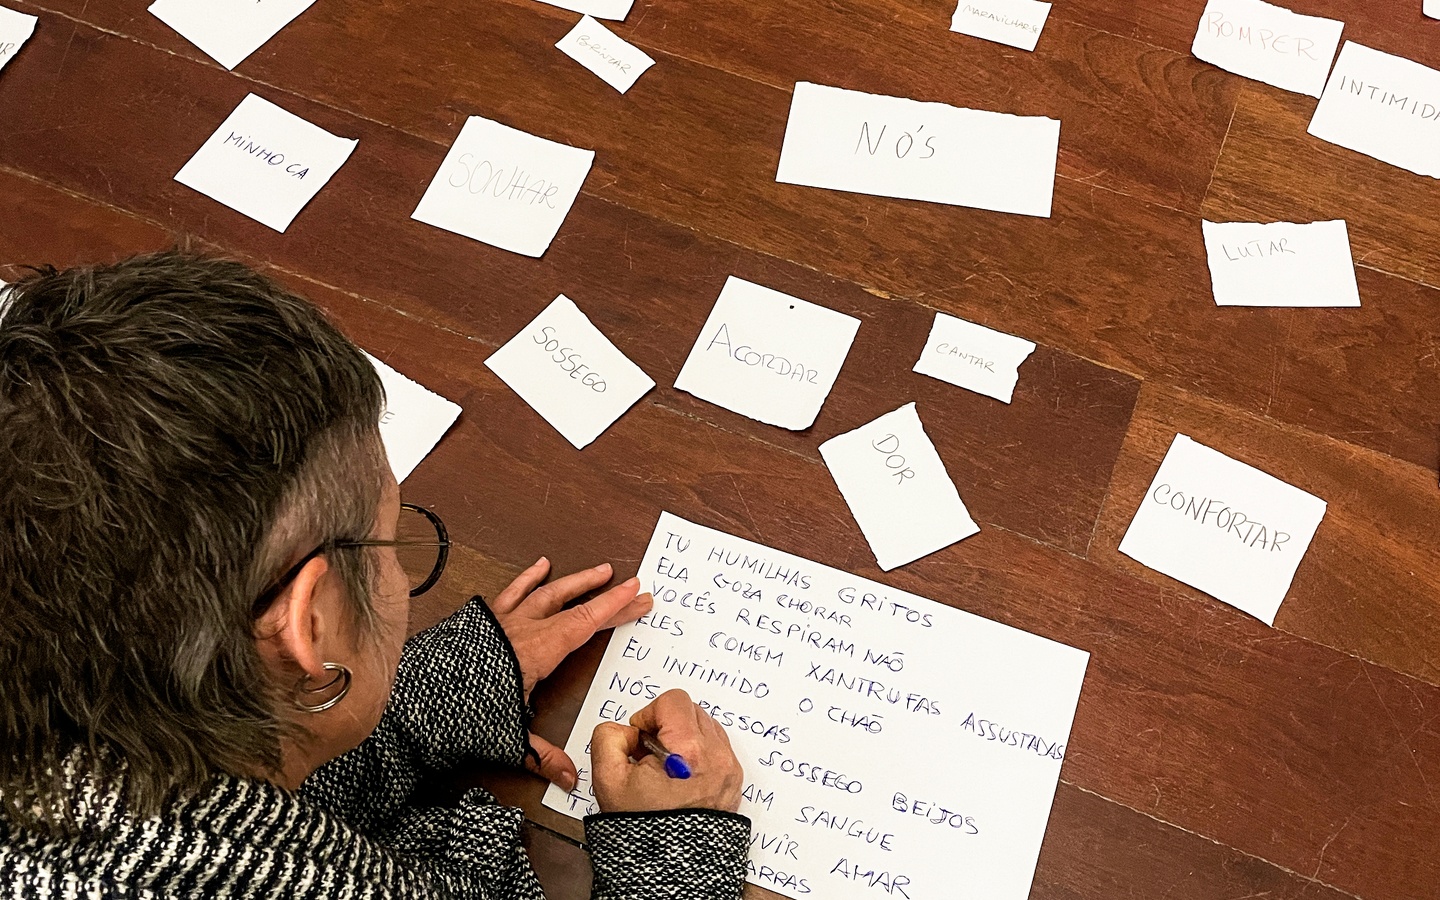 BRINCAR
MARAVILHAR-SE
ROMPER
INTIMIDA
MINHOCA
SONHAR
NÓS
LUTAR
SOSSEGO
ACORDAR
CANTAR
DOR
CONFORTAR
TU HUMILHAS GRITOS
ELA GOZA CHORAR
VOCÊS RESPIRAM NÃO
ELES COMEM XANTRUFAS ASSUSTADAS
EU INTIMIDO O CHÃO
NÓS PESSOAS
EU SOSSEGO BEIJOS
AM SANGUE
UVIR AMAR
ARRAS